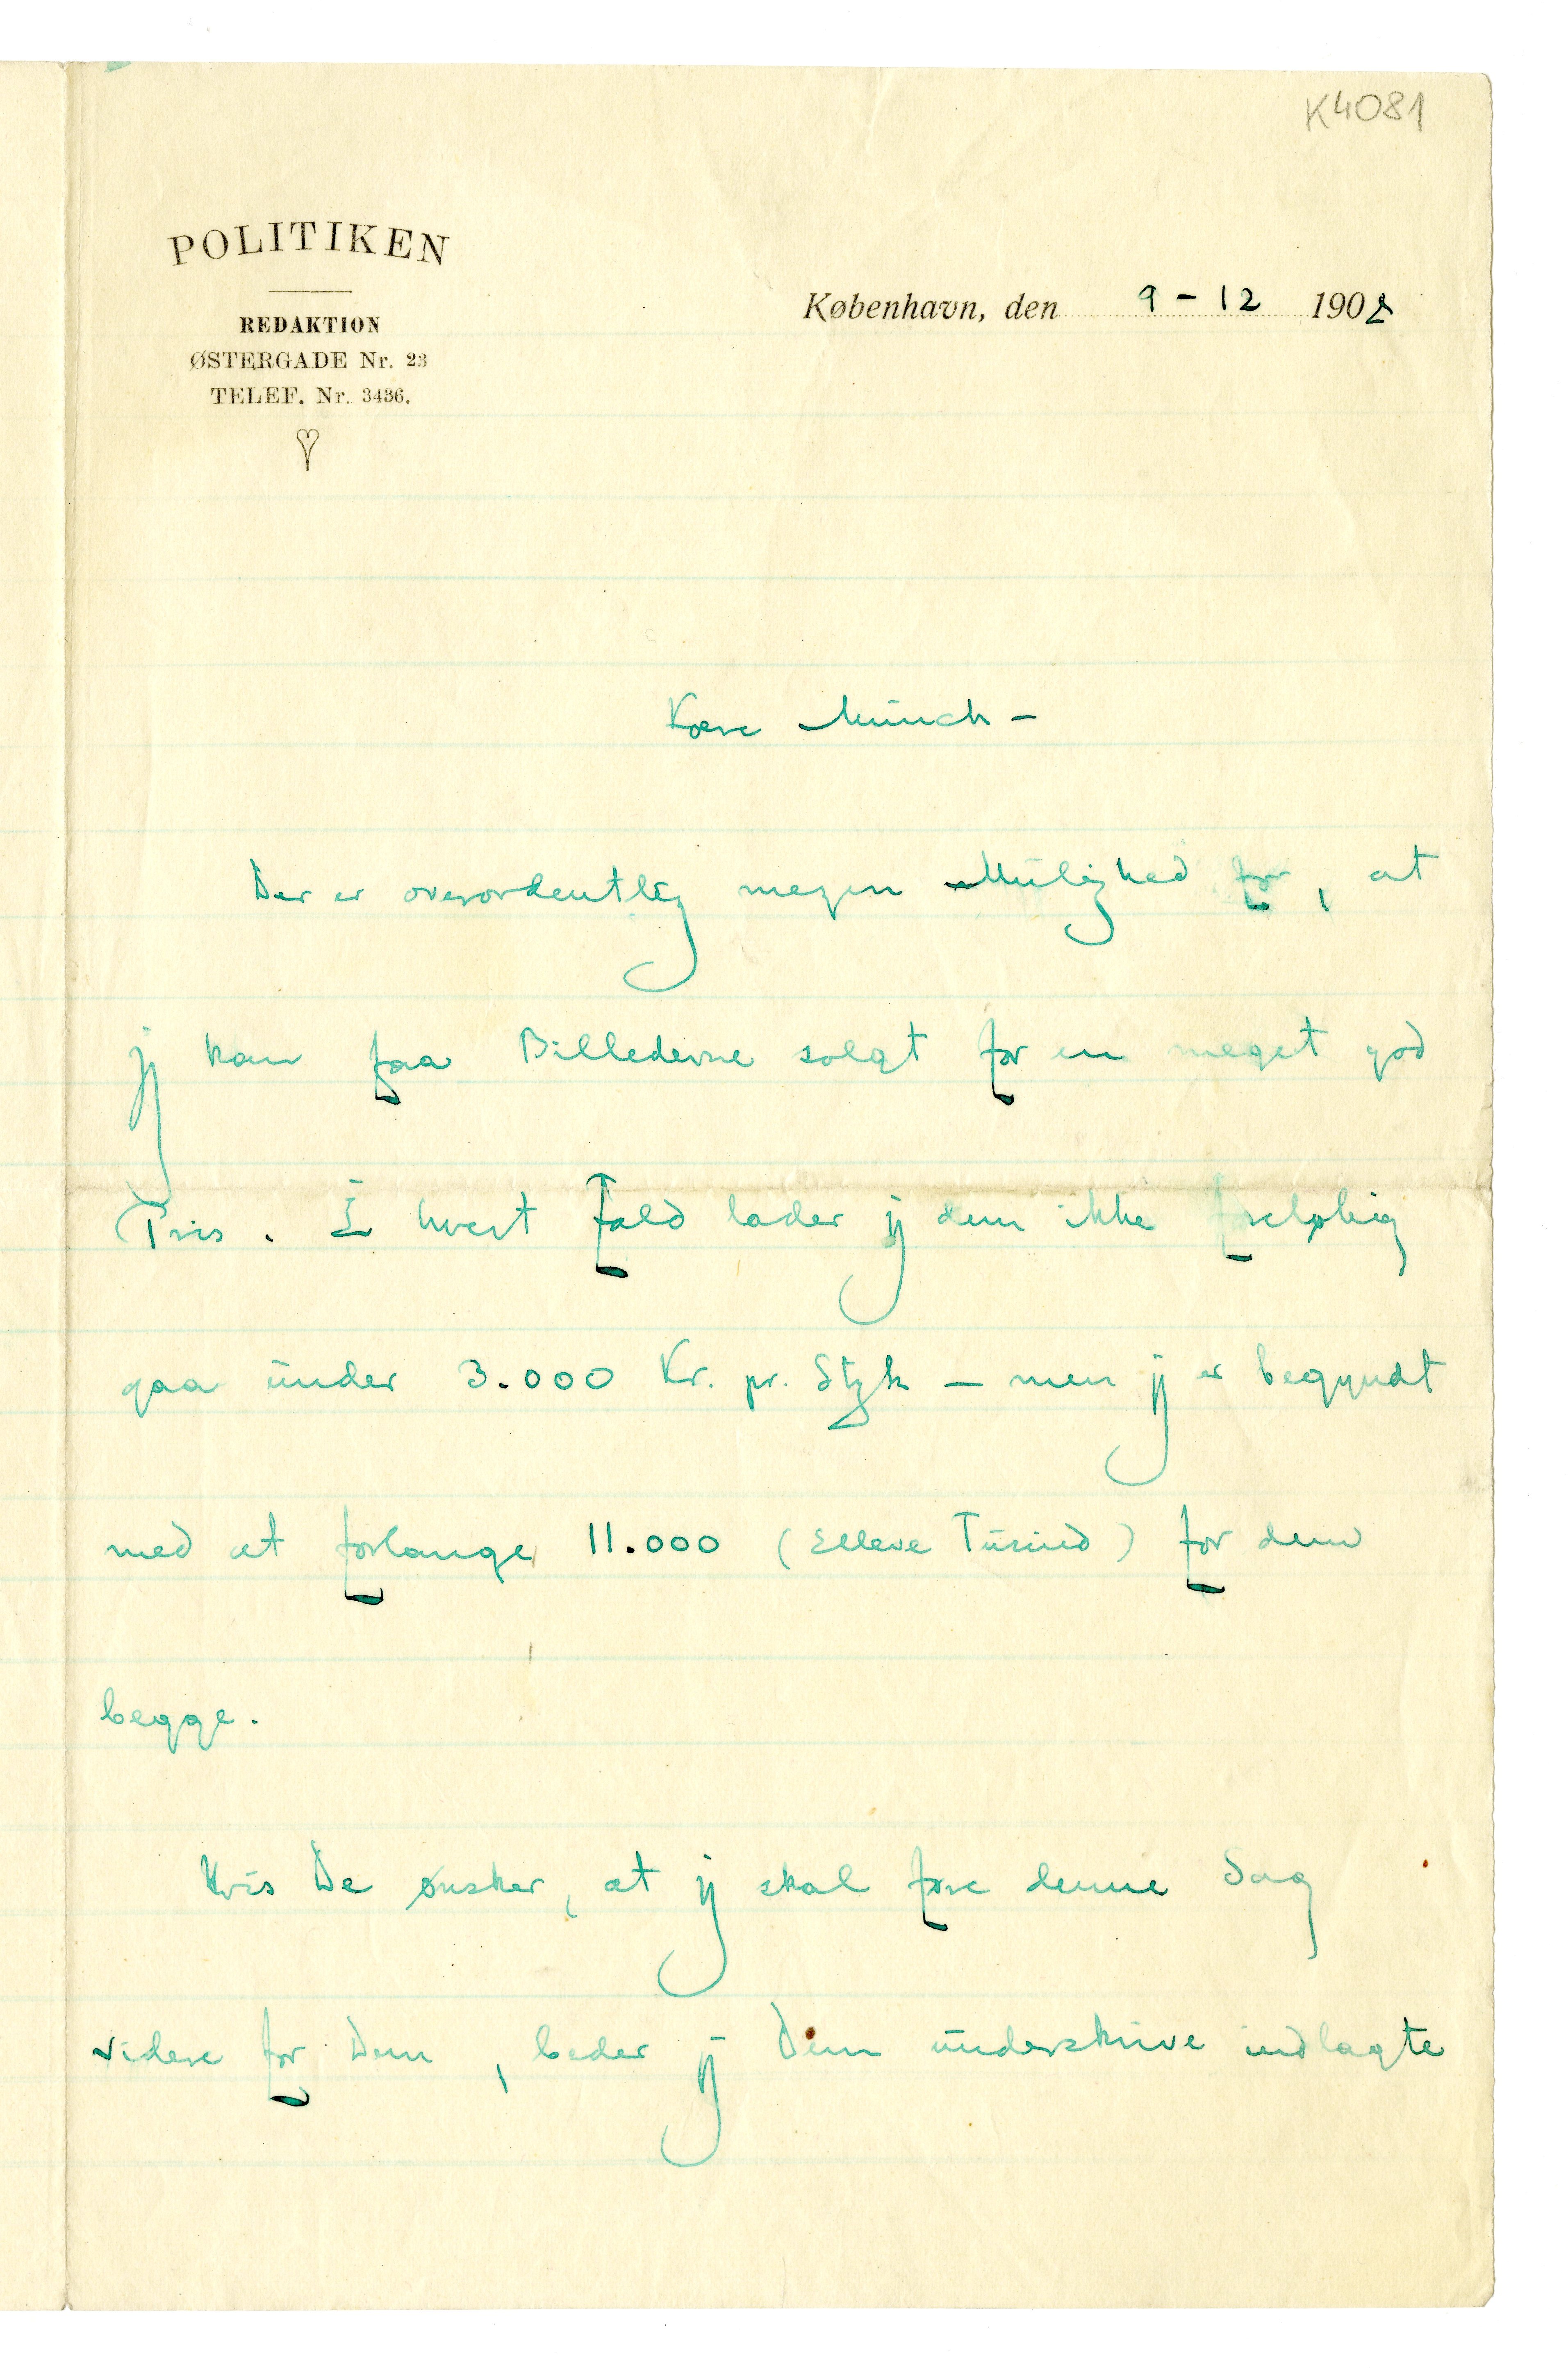 K4081
POLITIKEN
REDAKTION
ØSTERGADE Nr. 23
TELEF. Nr. 3436.
København, den 9-12 1908
Kære Munch -
Der er overordentlig megen Mulighed for, at
jeg kan faa Billederne solgt for en meget god
Pris. I hvert Fald lader jeg dem ikke foreløbig
gaa under 3.000 Kr. pr. Styk - men jeg er begyndt
med at forlange 11.000 (Elleve Tusind) for dem
begge.
Hvis De ønsker, at jeg skal føre denne Sag
videre for Dem, beder jeg Dem underskrive indlagte